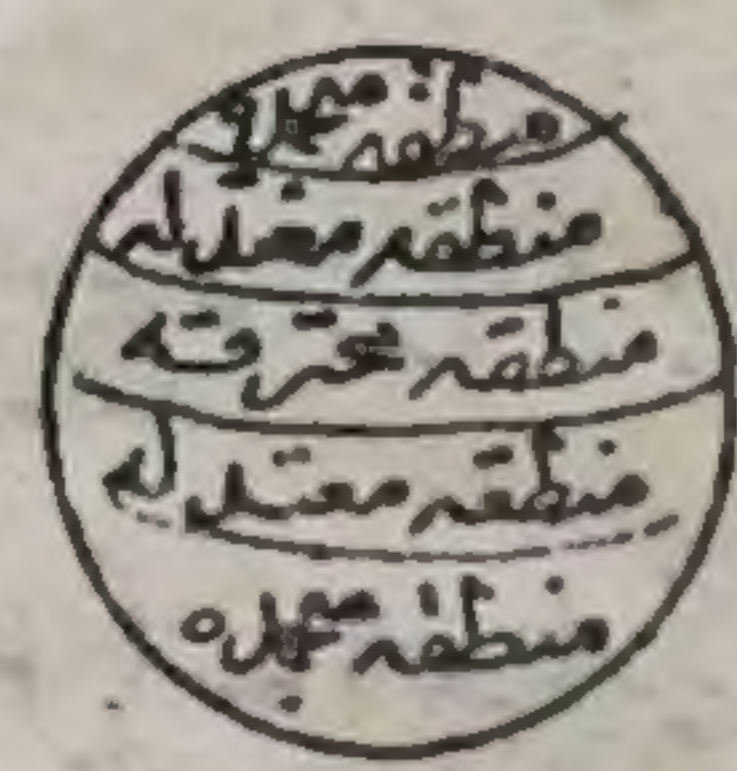 منطقه منجمده
منطقه معتدله
منطقه محترقه
منطقه معتدله
منطقه منجمده